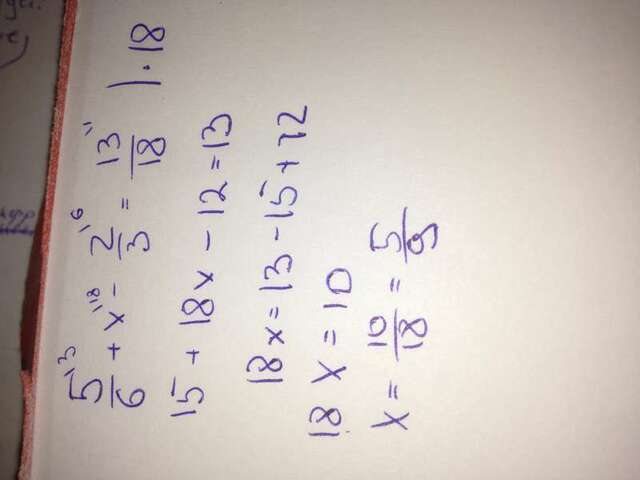 5/6 \3 + x \18 - 2/3 \6 = 13/18 \1 | · 18
15 + 18x - 12 = 13
18x = 13 - 15 + 12
18 x = 10
x = 10/18 = 5/9